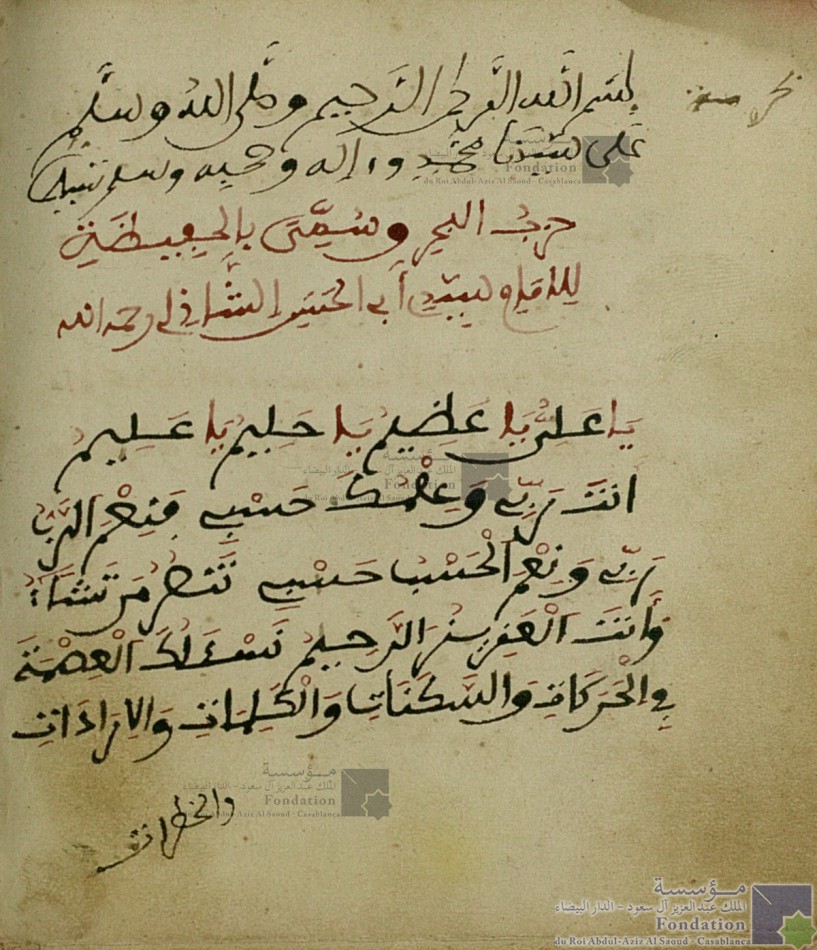 بسم الله الرحمن الرحيم وصلى الله وسلم
على سيدنا محمد وءاله وصحبه وسلم تسليما
حزب البحر ويسمى بالحفيظة
للامام سيدي أبي الحسن الشاذلي رحمه الله
يا علي يا عظيم يا حليم يا عليم
انت ربي وعلمك حسبي فنعم الرب
ربي ونعم الحسب حسبي تنصر من تشاء
وأنت العزيز الرحيم نسئلك العصمة
في الحركات والسكنات والكلمات والارادات
والخطرات
مؤسسة
الملك عبد العزيز آل سعود - الدار البيضاء
Fondation
du Roi Abdul-Aziz Al Saoud - Casablanca